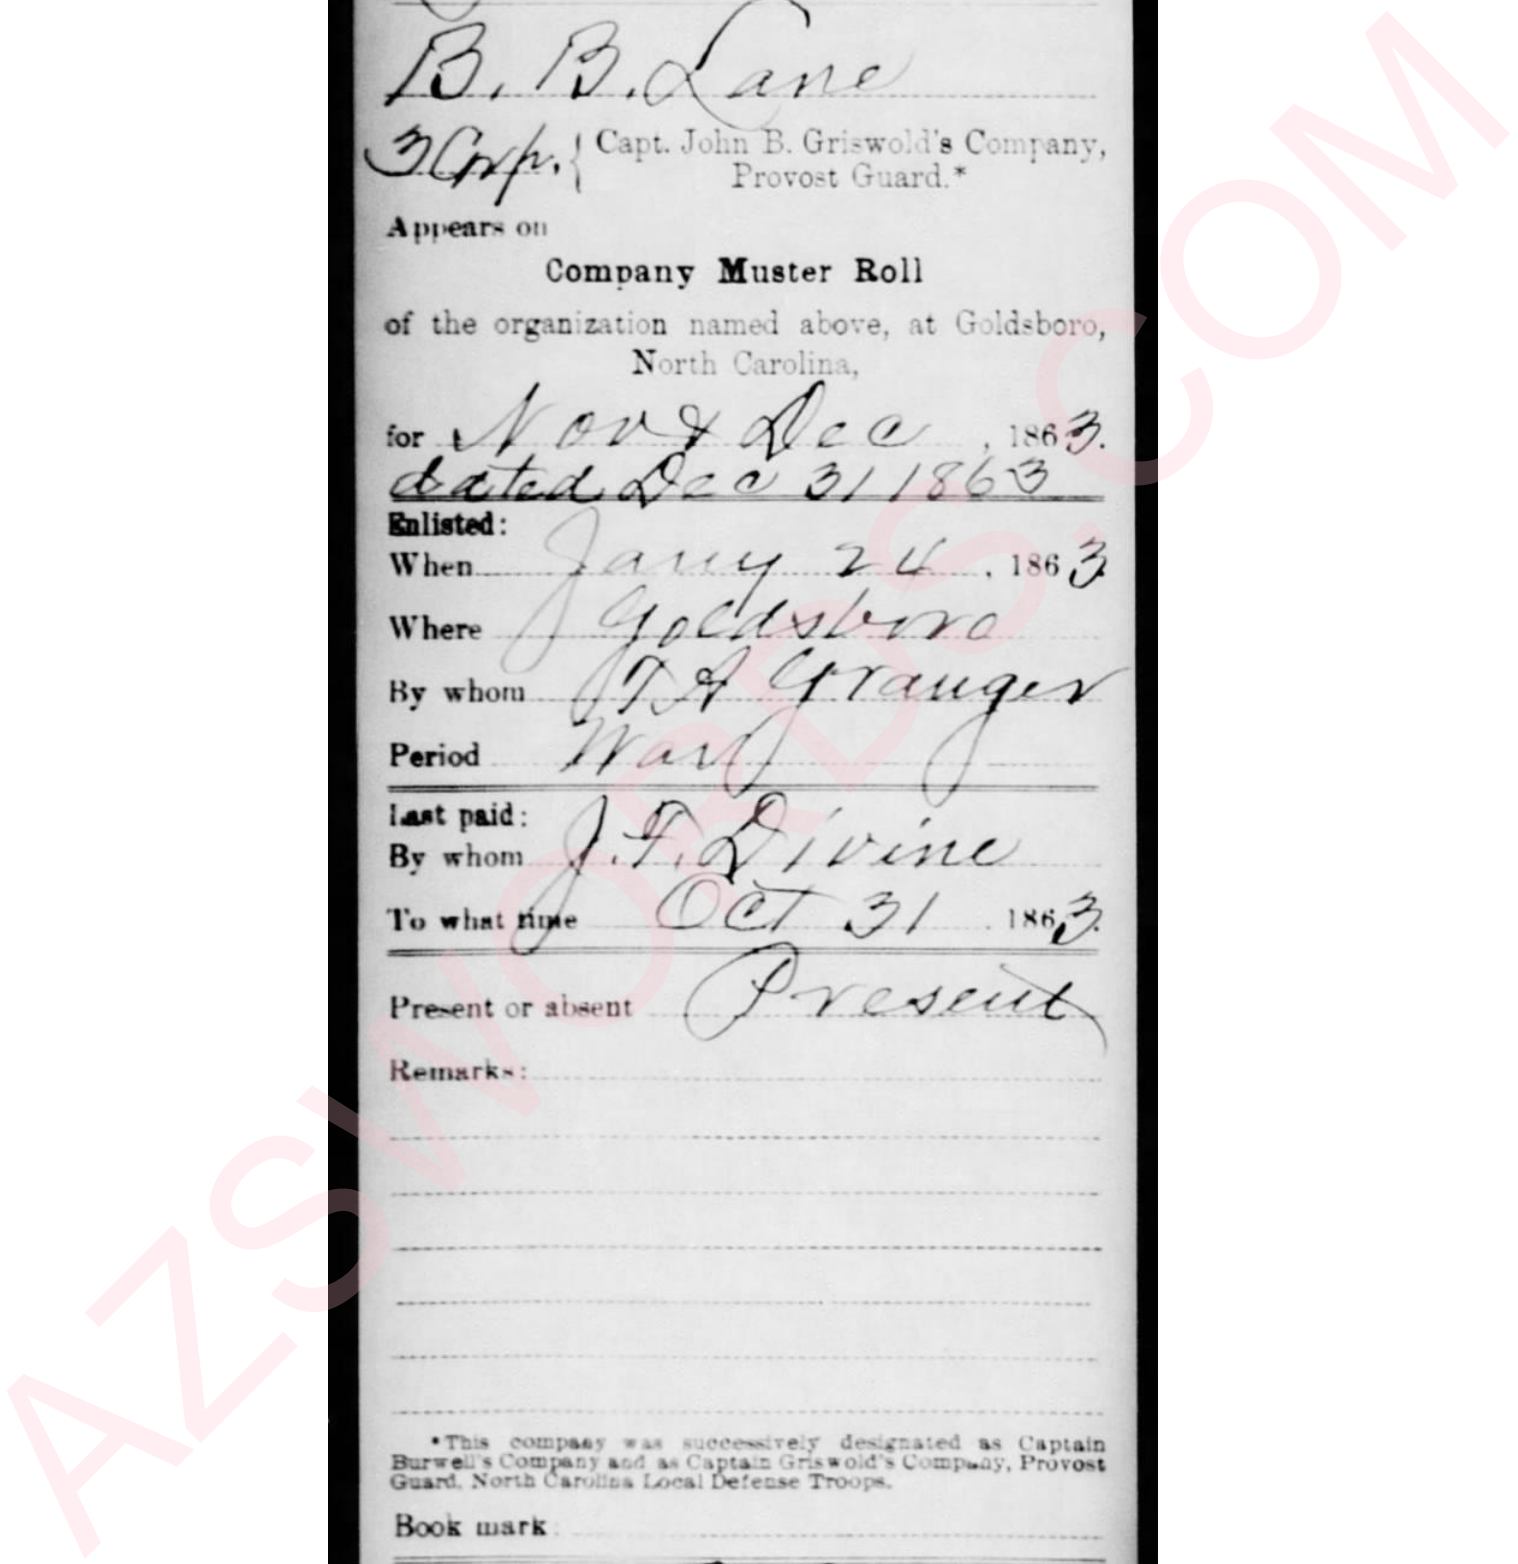 B. B. Lane
3 Corp. { Capt. John B. Griswold's Company,
Provost Guard.*
Appears on
Company Muster Roll
of the organization named above, at Goldsboro,
North Carolina,
for Nov & Dec , 1863.
dated Dec 31 1863
Enlisted:
When Jany 24 , 1863
Where Goldsboro
By whom T A Granger
Period War
Last paid:
By whom J. F. Divine
To what time Oct 31 . 1863.
Present or absent Present
Remarks:
*This company was successively designated as Captain
Burwell's Company and as Captain Griswold's Company, Provost
Guard, North Carolina Local Defense Troops.
Book mark:
AZSWORDS.COM